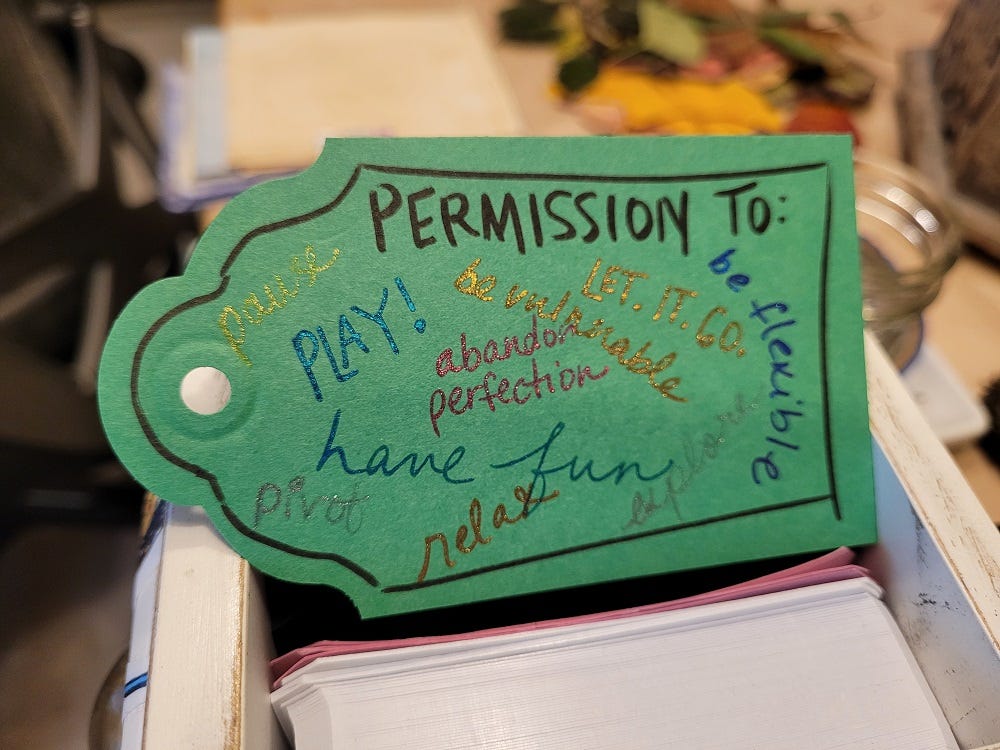 PERMISSION TO:
pause
PLAY!
be vulnerable
LET. IT. GO.
be flexible
abandon
perfection
have fun
pivot
relax
explore